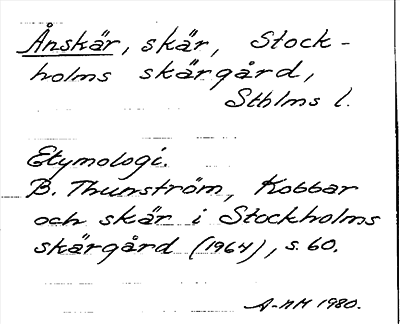 Ånskär, skär, Stock-
holms skärgård,
Sthlms l.
Etymologi.
B. Thunström, Kobbar
och skär i Stockholms
skärgård (1964), s. 60.
A-NM 1980.